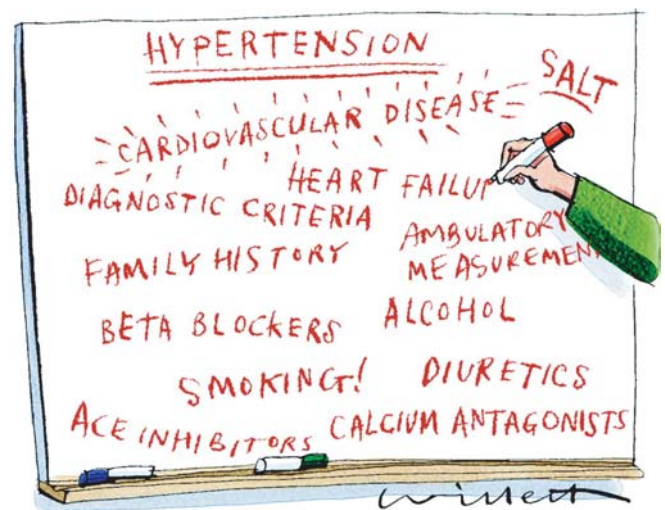 HYPERTENSION
SALT
CARDIOVASCULAR DISEASE
HEART FAILUR
DIAGNOSTIC CRITERIA
AMBULATORY
MEASUREMEN
FAMILY HISTORY
BETA BLOCKERS
ALCOHOL
SMOKING!
DIURETICS
ACE INHIBITORS
CALCIUM ANTAGONISTS